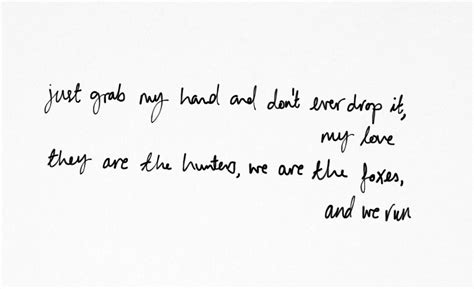 just grab my hand and don't ever drop it,
my love
they are the hunters, we are the foxes,
and we run